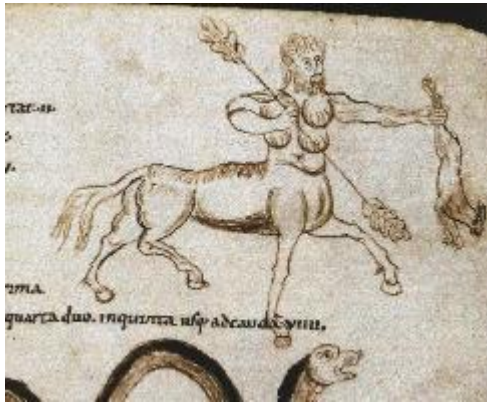 rima
quarta duo. inquinta usq; adcaudā viiii.